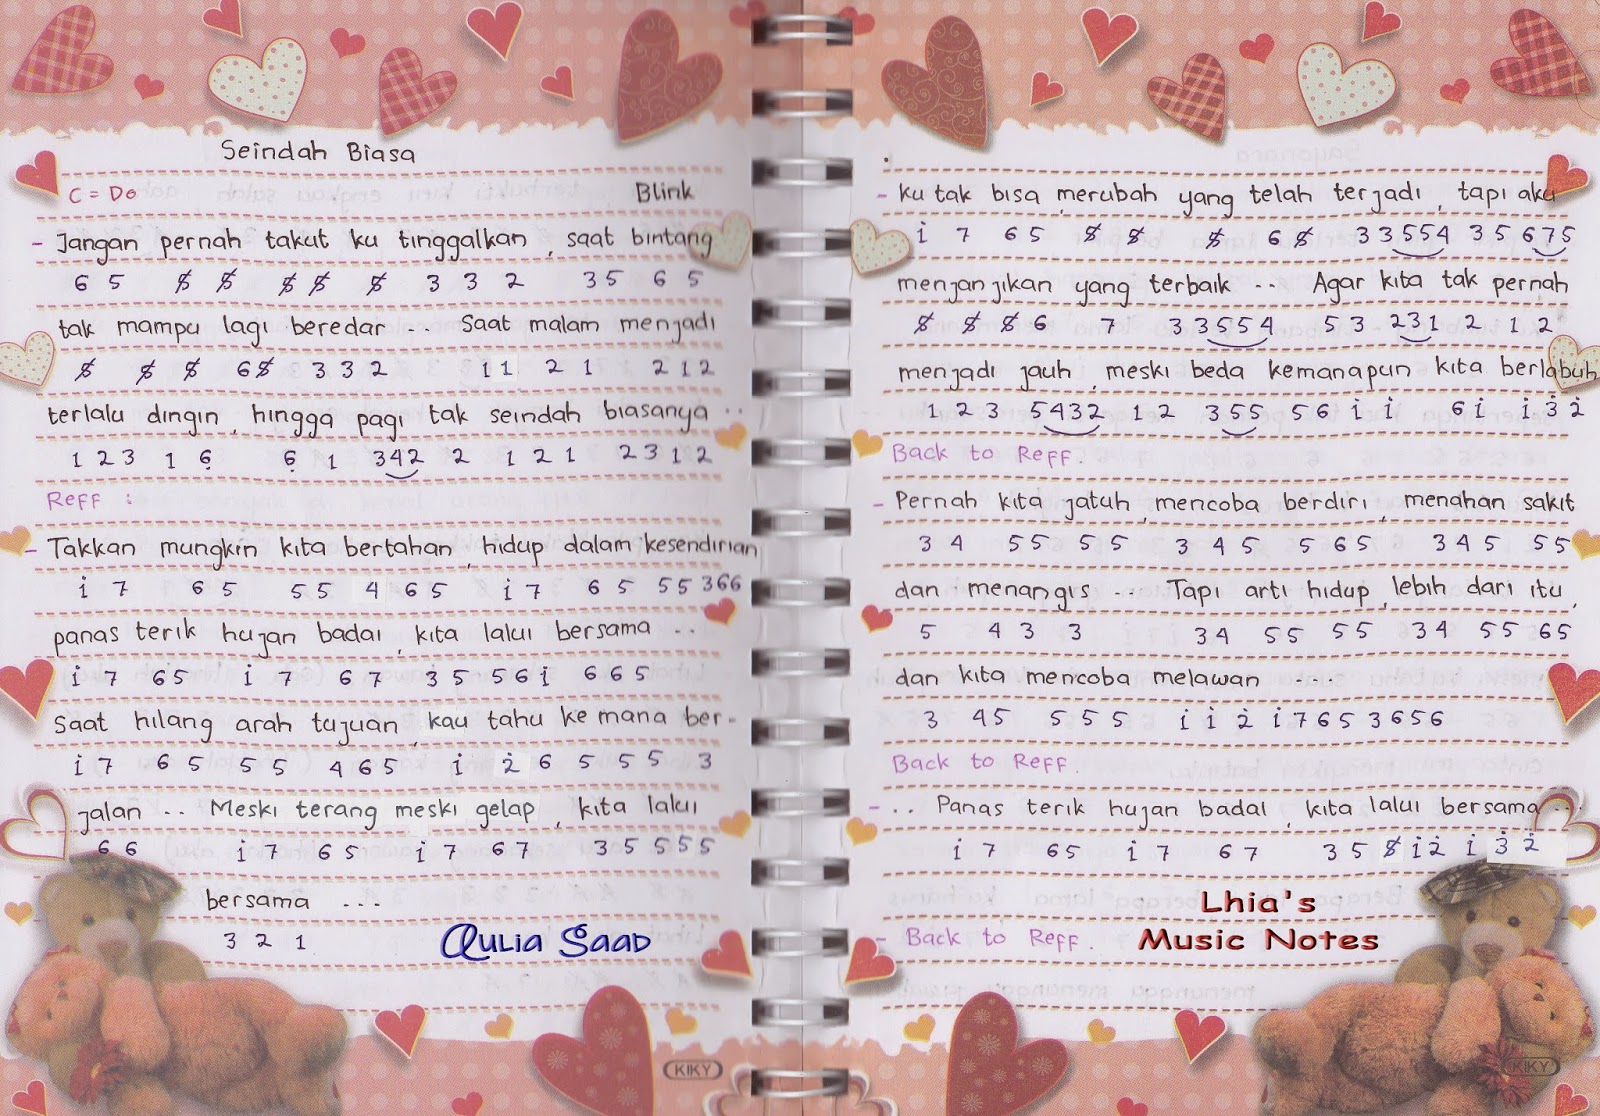 Seindah Biasa
C = Do Blink
- Jangan pernah takut ku tinggalkan, saat bintang
6 5 5̸ 5̸ 5̸ 5̸ 5̸ 3 3 2 3 5 6 5
tak mampu lagi beredar .. Saat malam menjadi
5̸ 5̸ 5̸ 6 5̸ 3 3 2 1 1 2 1 2 1 2
terlalu dingin, hingga pagi tak seindah biasanya ..
1 2 3 1 6̣ 6̣ 1 342 2 1 2 1 2 3 1 2
Reff :
- Takkan mungkin kita bertahan, hidup dalam kesendirian
i 7 6 5 5 5 4 6 5 i 7 6 5 5 5 3 6 6
panas terik hujan badai, kita lalui bersama ..
i 7 6 5 i 7 6 7 3 5 5 6 i 6 6 5
saat hilang arah tujuan, kau tahu ke mana ber-
i 7 6 5 5 5 4 6 5 i 2̇ 6 5 5 5 3
jalan .. Meski terang meski gelap, kita lalui
6 6 i 7 6 5 i 7 6 7 3 5 5 5 5
bersama ...
3 2 1
Aulia Saad
KIKY
- Ku tak bisa merubah yang telah terjadi, tapi aku
i 7 6 5 5̸ 5̸ 5̸ 6 5̸ 3 3554 3 5 675
menjanjikan yang terbaik .. Agar kita tak pernah
5̸ 5̸ 5̸ 6 7 3 3554 5 3 231 2 1 2
menjadi jauh, meski beda kemanapun kita berlabuh
1 2 3 5432 1 2 355 5 6 i i 6 i i 3̇ 2̇
Back to Reff.
- Pernah kita jatuh, mencoba berdiri, menahan sakit
3 4 5 5 5 5 3 4 5 5 6 5 3 4 5 5 5
dan menangis ... Tapi arti hidup, lebih dari itu,
5 4 3 3 3 4 5 5 5 5 3 4 5 5 6 5
dan kita mencoba melawan ....
3 4 5 5 5 5 i i 2̇ i 7 6 5 3 6 5 6
Back to Reff.
- .. Panas terik hujan badai, kita lalui bersama ...
i 7 6 5 i 7 6 7 3 5 5̸ i 2̇ i 3̇ 2̇
Lhia's
- Back to Reff. Music Notes
KIKY